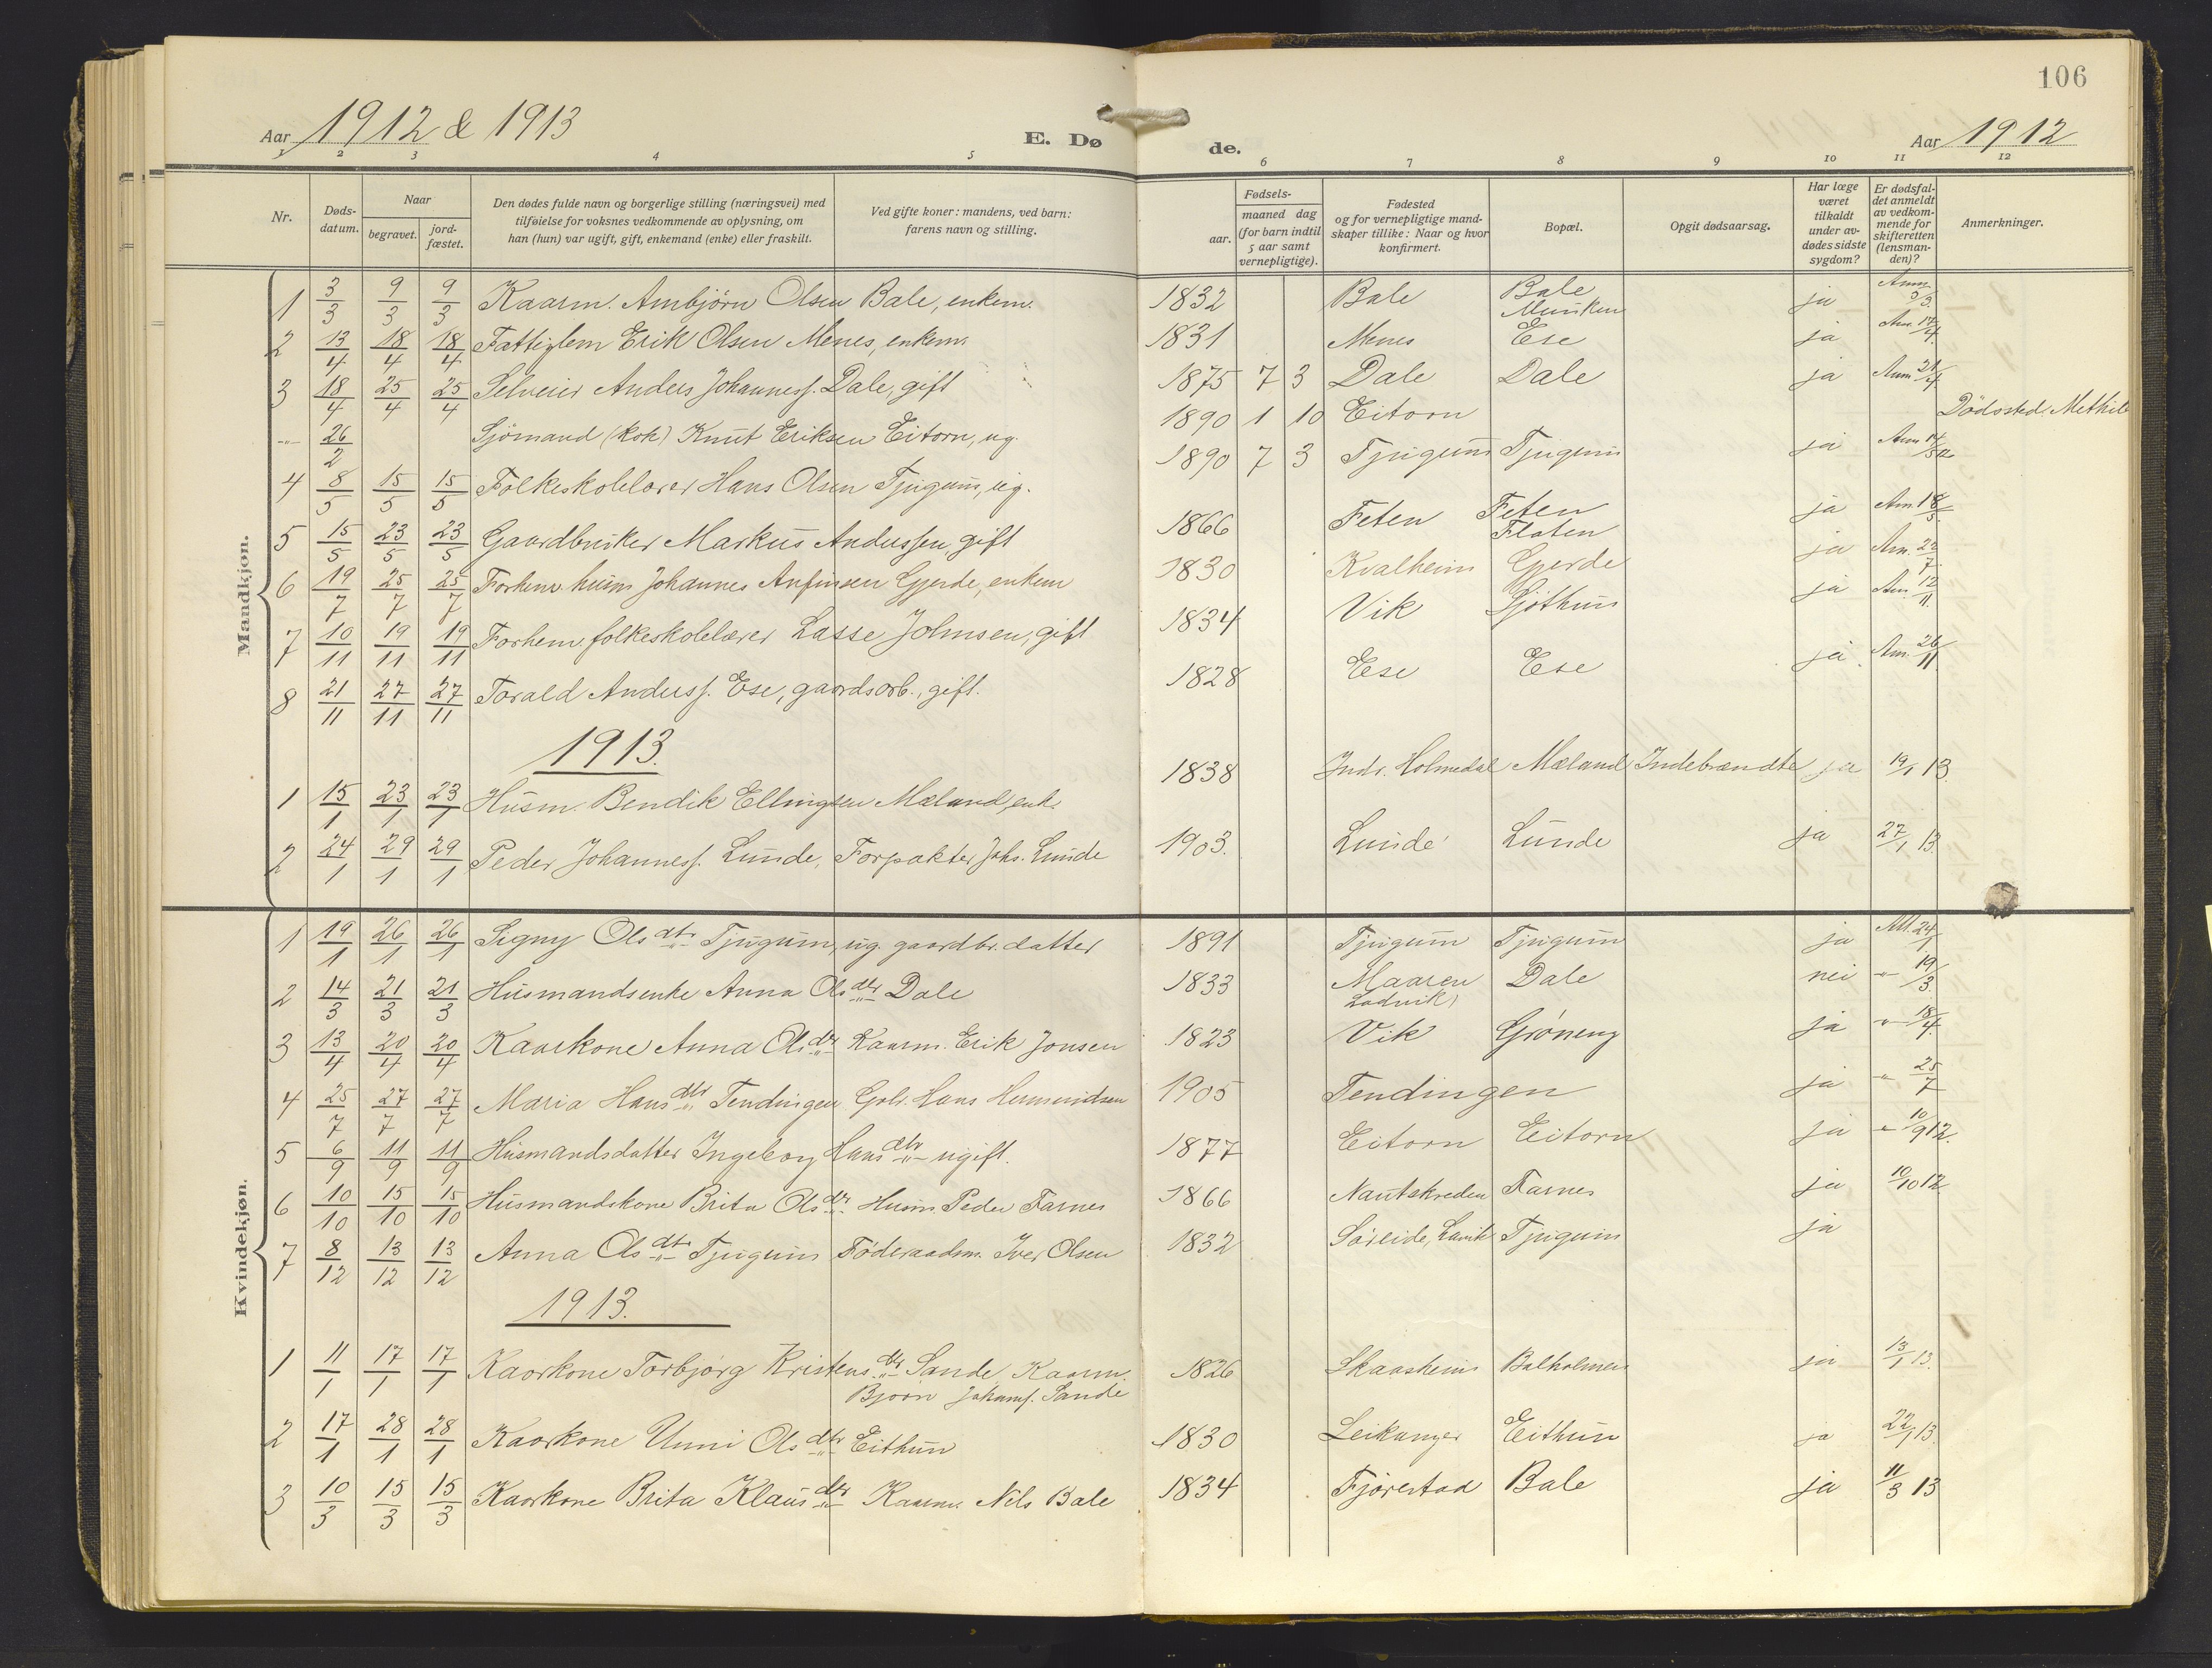 106
Aar 1912 & 1913 E. Dø de. Aar 1912
1 2 3 4 5 6 7 8 9 10 11 12
Nr.
Døds-
datum.
Naar
begravet.
jord-
fæstet.
Den dødes fulde navn og borgerlige stilling (næringsvei) med
tilføielse for voksnes vedkommende av oplysning, om
han (hun) var ugift, gift, enkemand (enke) eller fraskilt.
Ved gifte koner: mandens, ved barn:
farens navn og stilling.
Fødsels-
aar.
maaned dag
(for barn indtil
5 aar samt
vernepligtige).
Fødested
og for vernepligtige mand-
skaper tillike: Naar og hvor
konfirmert.
Bopæl.
Opgit dødsaarsag.
Har læge
været
tilkaldt
under av-
dødes sidste
sygdom?
Er dødsfal-
det anmeldt
av vedkom-
mende for
skifteretten
(lensman-
den)?
Anmerkninger.
Mandkjøn.
1 3/3 9/3 9/3 Kaarm. Ambjörn Olsen Bale, enkem. 1832 Bale Bale Munken ja Anm. 5/3
2 13/4 18/4 18/4 Fattiglem Erik Olsen Menes, enkem. 1831 Menes Ese ja Anm. 17/4
3 18/4 25/4 25/4 Selveier Anders Johanness. Dale, gift 1875 7 3 Dale Dale ja Anm. 21/4
-"- 26/2 Sjömand (kok) Knut Eriksen Eitorn, ug. 1890 1 10 Eitorn Dödssted: Methil
4 8/5 15/5 15/5 Folkeskolelærer Hans Olsen Tjugum, ug. 1890 7 3 Tjugum Tjugum ja Anm. 14/5
5 15/5 23/5 23/5 Gaardbruker Markus Anderssen, gift 1866 Feten Feten Flaten ja Anm. 18/5
6 19/7 25/7 25/7 Forhenv. husm. Johannes Anfinsen Gjerde, enkem 1830 Kvalheim Gjerde ja Anm. 22/7
7 10/11 19/11 19/11 Forhenv. folkeskolelærer Lasse Johnsen, gift 1834 Vik Sjöthun ja Anm. 12/11
8 21/11 27/11 27/11 Torald Anderss. Ese, gaardsarb., gift. 1828 Ese Ese ja Anm. 26/11
1913.
1 15/1 23/1 23/1 Husm. Bendik Ellingsen Mæland, enk. 1838 Indr. Holmedal Mæland Indebrændte ja 19/1 13.
2 24/1 29/1 29/1 Peder Johanness. Lunde, Forpakter Johs. Lunde 1903. Lunde Lunde ja 27/1 13.
Kvindekjøn.
1 19/1 26/1 26/1 Signy Olsdtr Tjugum, ug. gaardbr. datter 1891 Tjugum Tjugum ja 24/1
2 14/3 21/3 21/3 Husmandsenke Anna Olsdtr Dale 1833 Maaren Ladvik) Dale nei -"- 19/3.
3 13/4 20/4 20/4 Kaarkone Anna Olsdtr Kaarm. Erik Jonsen 1823 Vik Gröneng ja -"- 18/4.
4 25/7 27/7 27/7 Maria Hansdtr Tendingen Gbr. Hans Hermundsen 1905 Tendingen ja -"- 25/7
5 6/9 11/9 11/9 Husmandsdatter Ingeborg Hansdtr ugift. 1877 Eitorn Eitorn ja -"- 10/9 12.
6 10/10 15/10 15/10 Husmandskone Brita Olsdtr Husm. Peder Farnes 1866 Nautskreden Farnes ja 10/10 12
7 8/12 13/12 13/12 Anna Olsdtr Tjugum Föderaadsm. Iver Olsen 1832 Söreide, Lavik Tjugum ja
1913.
1 11/1 17/1 17/1 Kaarkone Torbjörg Kristensdtr Sande, Kaarm. Bjorn Johanns. Sande 1826 Skaasheim Balholmen ja 13/1 13.
2 17/1 28/1 28/1 Kaarkone Unni Olsdtr Eithun 1830 Leikanger Eithun ja 22/1 13.
3 10/3 15/3 15/3 Kaarkone Brita Klausdtr Kaarm. Nils Bale 1834 Fjörestad Bale ja 11/3 13